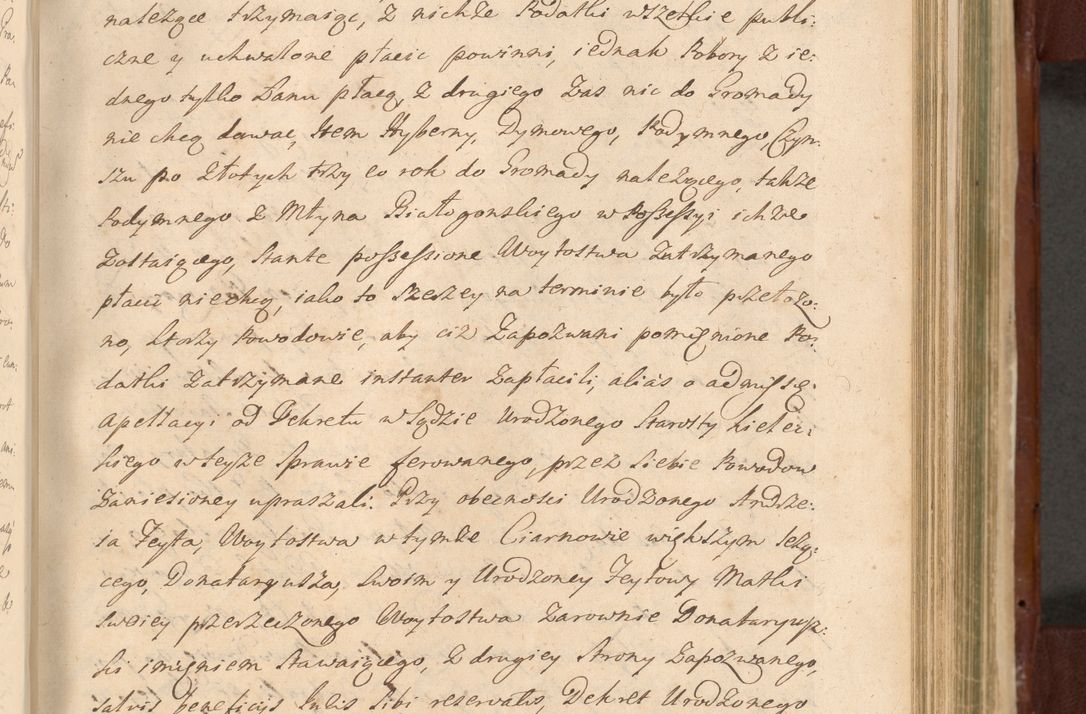 należące trzymaiąc, z nichże Podatki wszelkie publi:
czne y uchwalone płacic powinni, iednak Pobory z ie:
dnego tylko Łanu płacą, z drugiego zas nic do Gromady
nie chcą dawac, Item Hyberny, Dymowego, Podymnego, Czyn:
szu po Złotych trzy co rok do Gromady należącego, także
Podymnego z Młyna Białogonskiego w Possessyi ichże
Zostaiącego, stante possessione Woytostwa zatrzymanego
płacic niechcą, iako to szerzey na terminie było przełozo:
no, ktorzy Powodowie, aby ciż Zapozwani pomienione Po:
datki zatrzymane instanter zapłacili, alias o admissę
Apellacyi od Dekretu w Sądzie Urodzonego Starosty Kielec:
kiego w teyże sprawie ferowanego, przez siebie Powodow
zaniesioney upraszali. Przy obecnosci Urodzonego Andrze:
ia Feyta, Woytostwa w tymże Ciarnowie większym leżą:
cego, Donataryusza, swoim y Urodzoney Feytowy Matki
swoiey przerzeczonego Woytostwa zarownie Donataryusz:
ki imieniem stawaiącego, z drugiey strony Zapozwanego,
salvis beneficijs Iuris sibi reservatis, Dekret Urodzonego